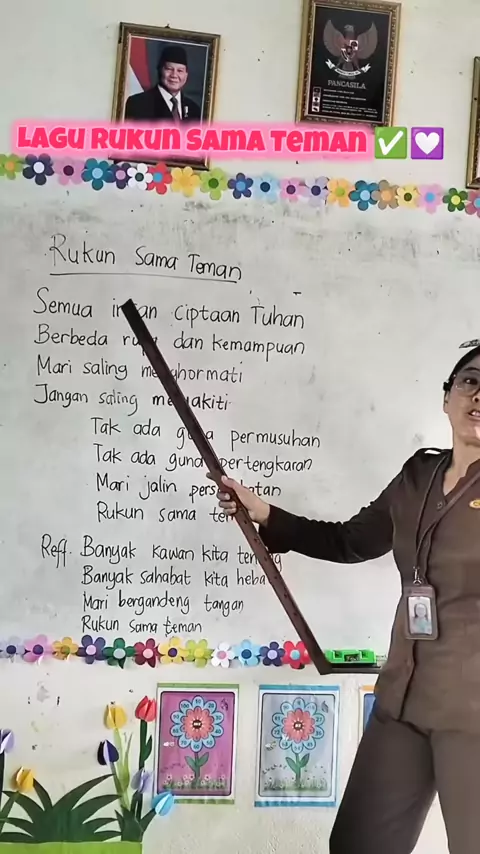 PANCASILA
LAGU RUKUN SAMA TEMAN
Rukun Sama Teman
Semua ciptaan Tuhan
Berbeda dan kemampuan
Mari saling menghormati
Jangan saling menyakiti
Tak ada guna permusuhan
Tak ada guna pertengkaran
Mari jalin
Rukun sama
Reff. Banyak kawan kita
Banyak sahabat kita
Mari bergandeng tangan
Rukun sama teman